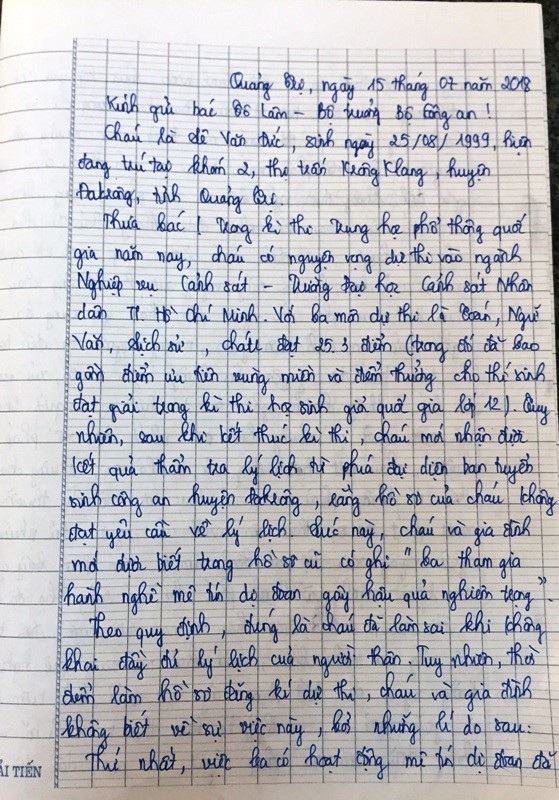 Quảng Trị, ngày 15 tháng 07 năm 2018
Kính gửi bác Tô Lâm - Bộ trưởng Bộ Công an !
Cháu là Lê Văn Đức, sinh ngày 25/08/1999, hiện
đang trú tại khóm 2, thị trấn Krông Klang, huyện
Đakrông, tỉnh Quảng Trị.
Thưa bác ! Trong kì thi Trung học phổ thông quốc
gia năm nay, cháu có nguyện vọng dự thi vào ngành
Nghiệp vụ Cảnh sát - Trường Đại học Cảnh sát Nhân
dân TP. Hồ Chí Minh. Với ba môn dự thi là Toán, Ngữ
Văn, Lịch sử, cháu đạt 25.3 điểm (trong đó đã bao
gồm điểm ưu tiên vùng miền và điểm thưởng cho thí sinh
đạt giải trong kì thi học sinh giỏi quốc gia lớp 12). Tuy
nhiên, sau khi kết thúc kì thi, cháu mới nhận được
kết quả thẩm tra lý lịch từ phía đại diện ban tuyển
sinh công an huyện Đakrông, rằng hồ sơ của cháu không
đạt yêu cầu về lý lịch. Lúc này, cháu và gia đình
mới được biết trong hồ sơ cũ có ghi "Ba tham gia
hành nghề mê tín dị đoan gây hậu quả nghiêm trọng".
Theo quy định, đúng là cháu đã làm sai khi không
khai đầy đủ lý lịch của người thân. Tuy nhiên, thời
điểm làm hồ sơ đăng kí dự thi, cháu và gia đình
không biết về sự việc này, bởi những lí do sau:
Thứ nhất, việc ba có hoạt động mê tín dị đoan đã
ẢI TIẾN